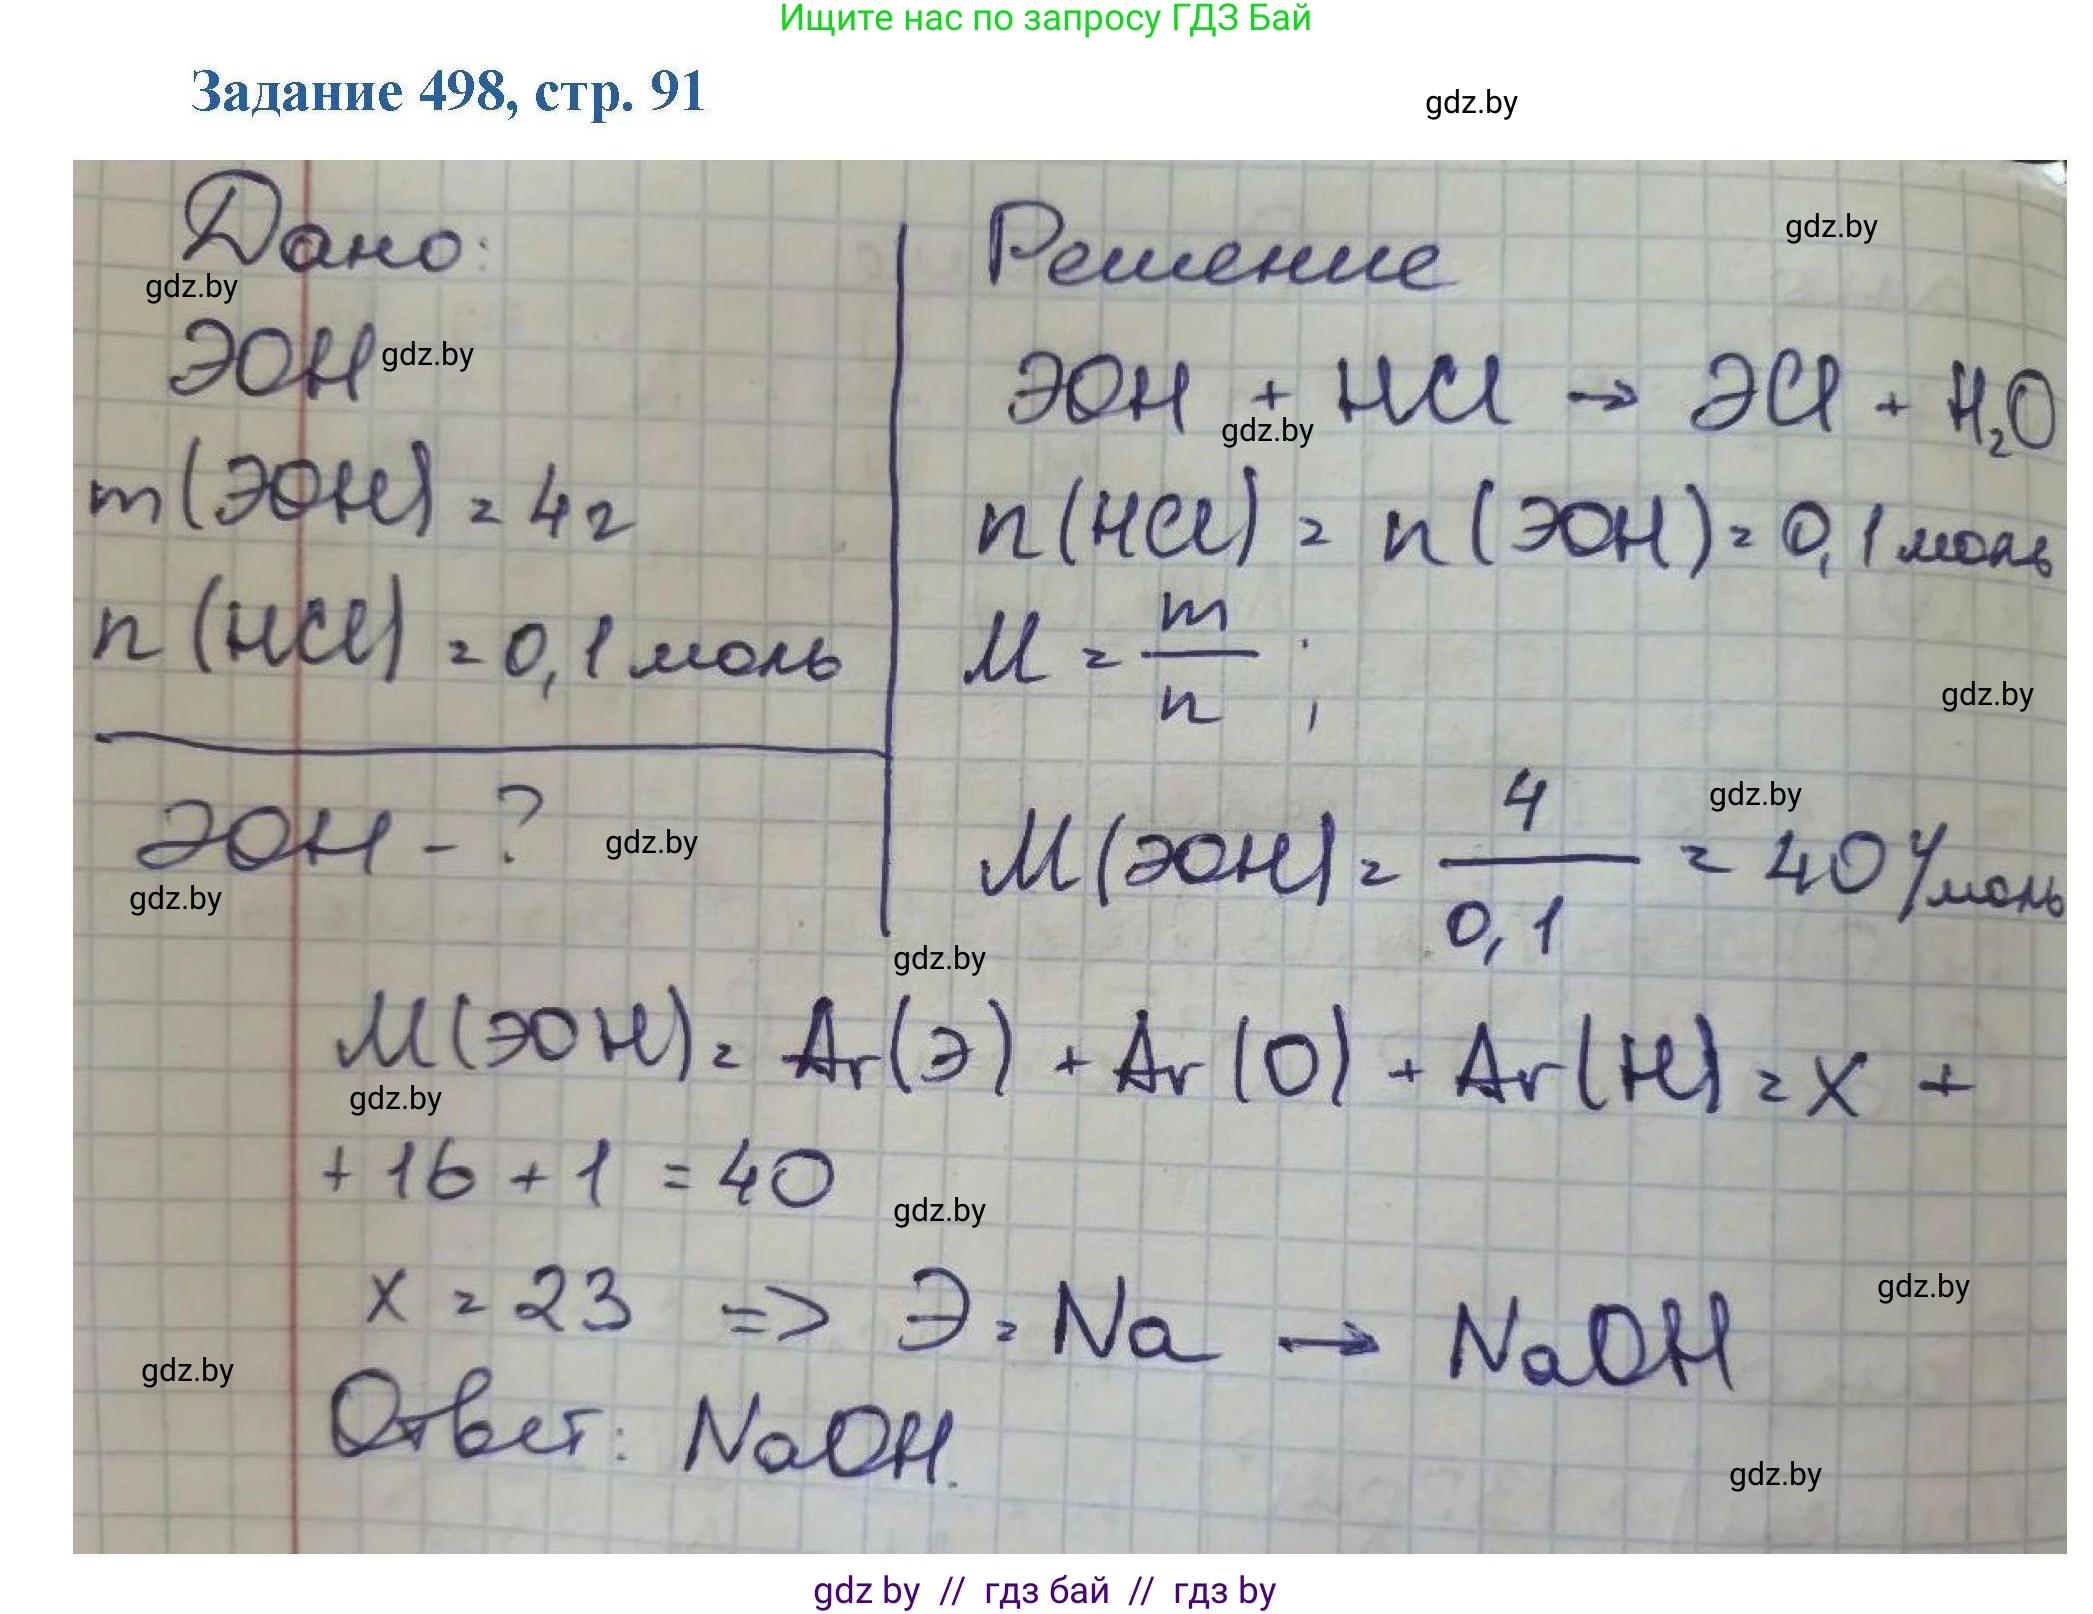 Ищите нас по запросу ГДЗ Бай
Задание 498, стр. 91
gdz.by
Дано:
gdz.by
ЭОН gdz.by
m(ЭОН) = 4г
n(HCl) = 0,1 моль
ЭОН - ?
gdz.by
gdz.by
Решение
gdz.by
ЭОН + HCl → ЭCl + H₂O
gdz.by
n(HCl) = n(ЭОН) = 0,1 моль
M = m/n ;
gdz.by
gdz.by
M(ЭОН) = 4/0,1 = 40 г/моль
gdz.by
M(ЭОН) = Ar(Э) + Ar(O) + Ar(H) = x +
gdz.by
+ 16 + 1 = 40
gdz.by
x = 23 => Э = Na → NaOH
gdz.by
gdz.by
Ответ: NaOH.
gdz.by
gdz by // гдз бай // гдз by